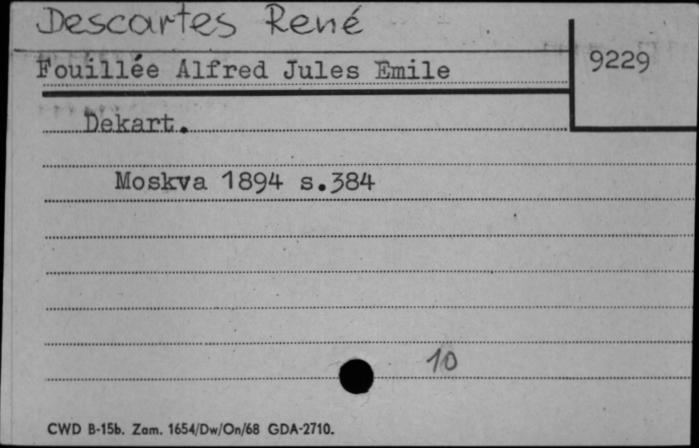 Descartes René
Fouillée Alfred Jules Emile
9229
Dekart.
Moskva 1894 s.384
10
CWD B-15b. Zam. 1654/Dw/On/68 GDA-2710.